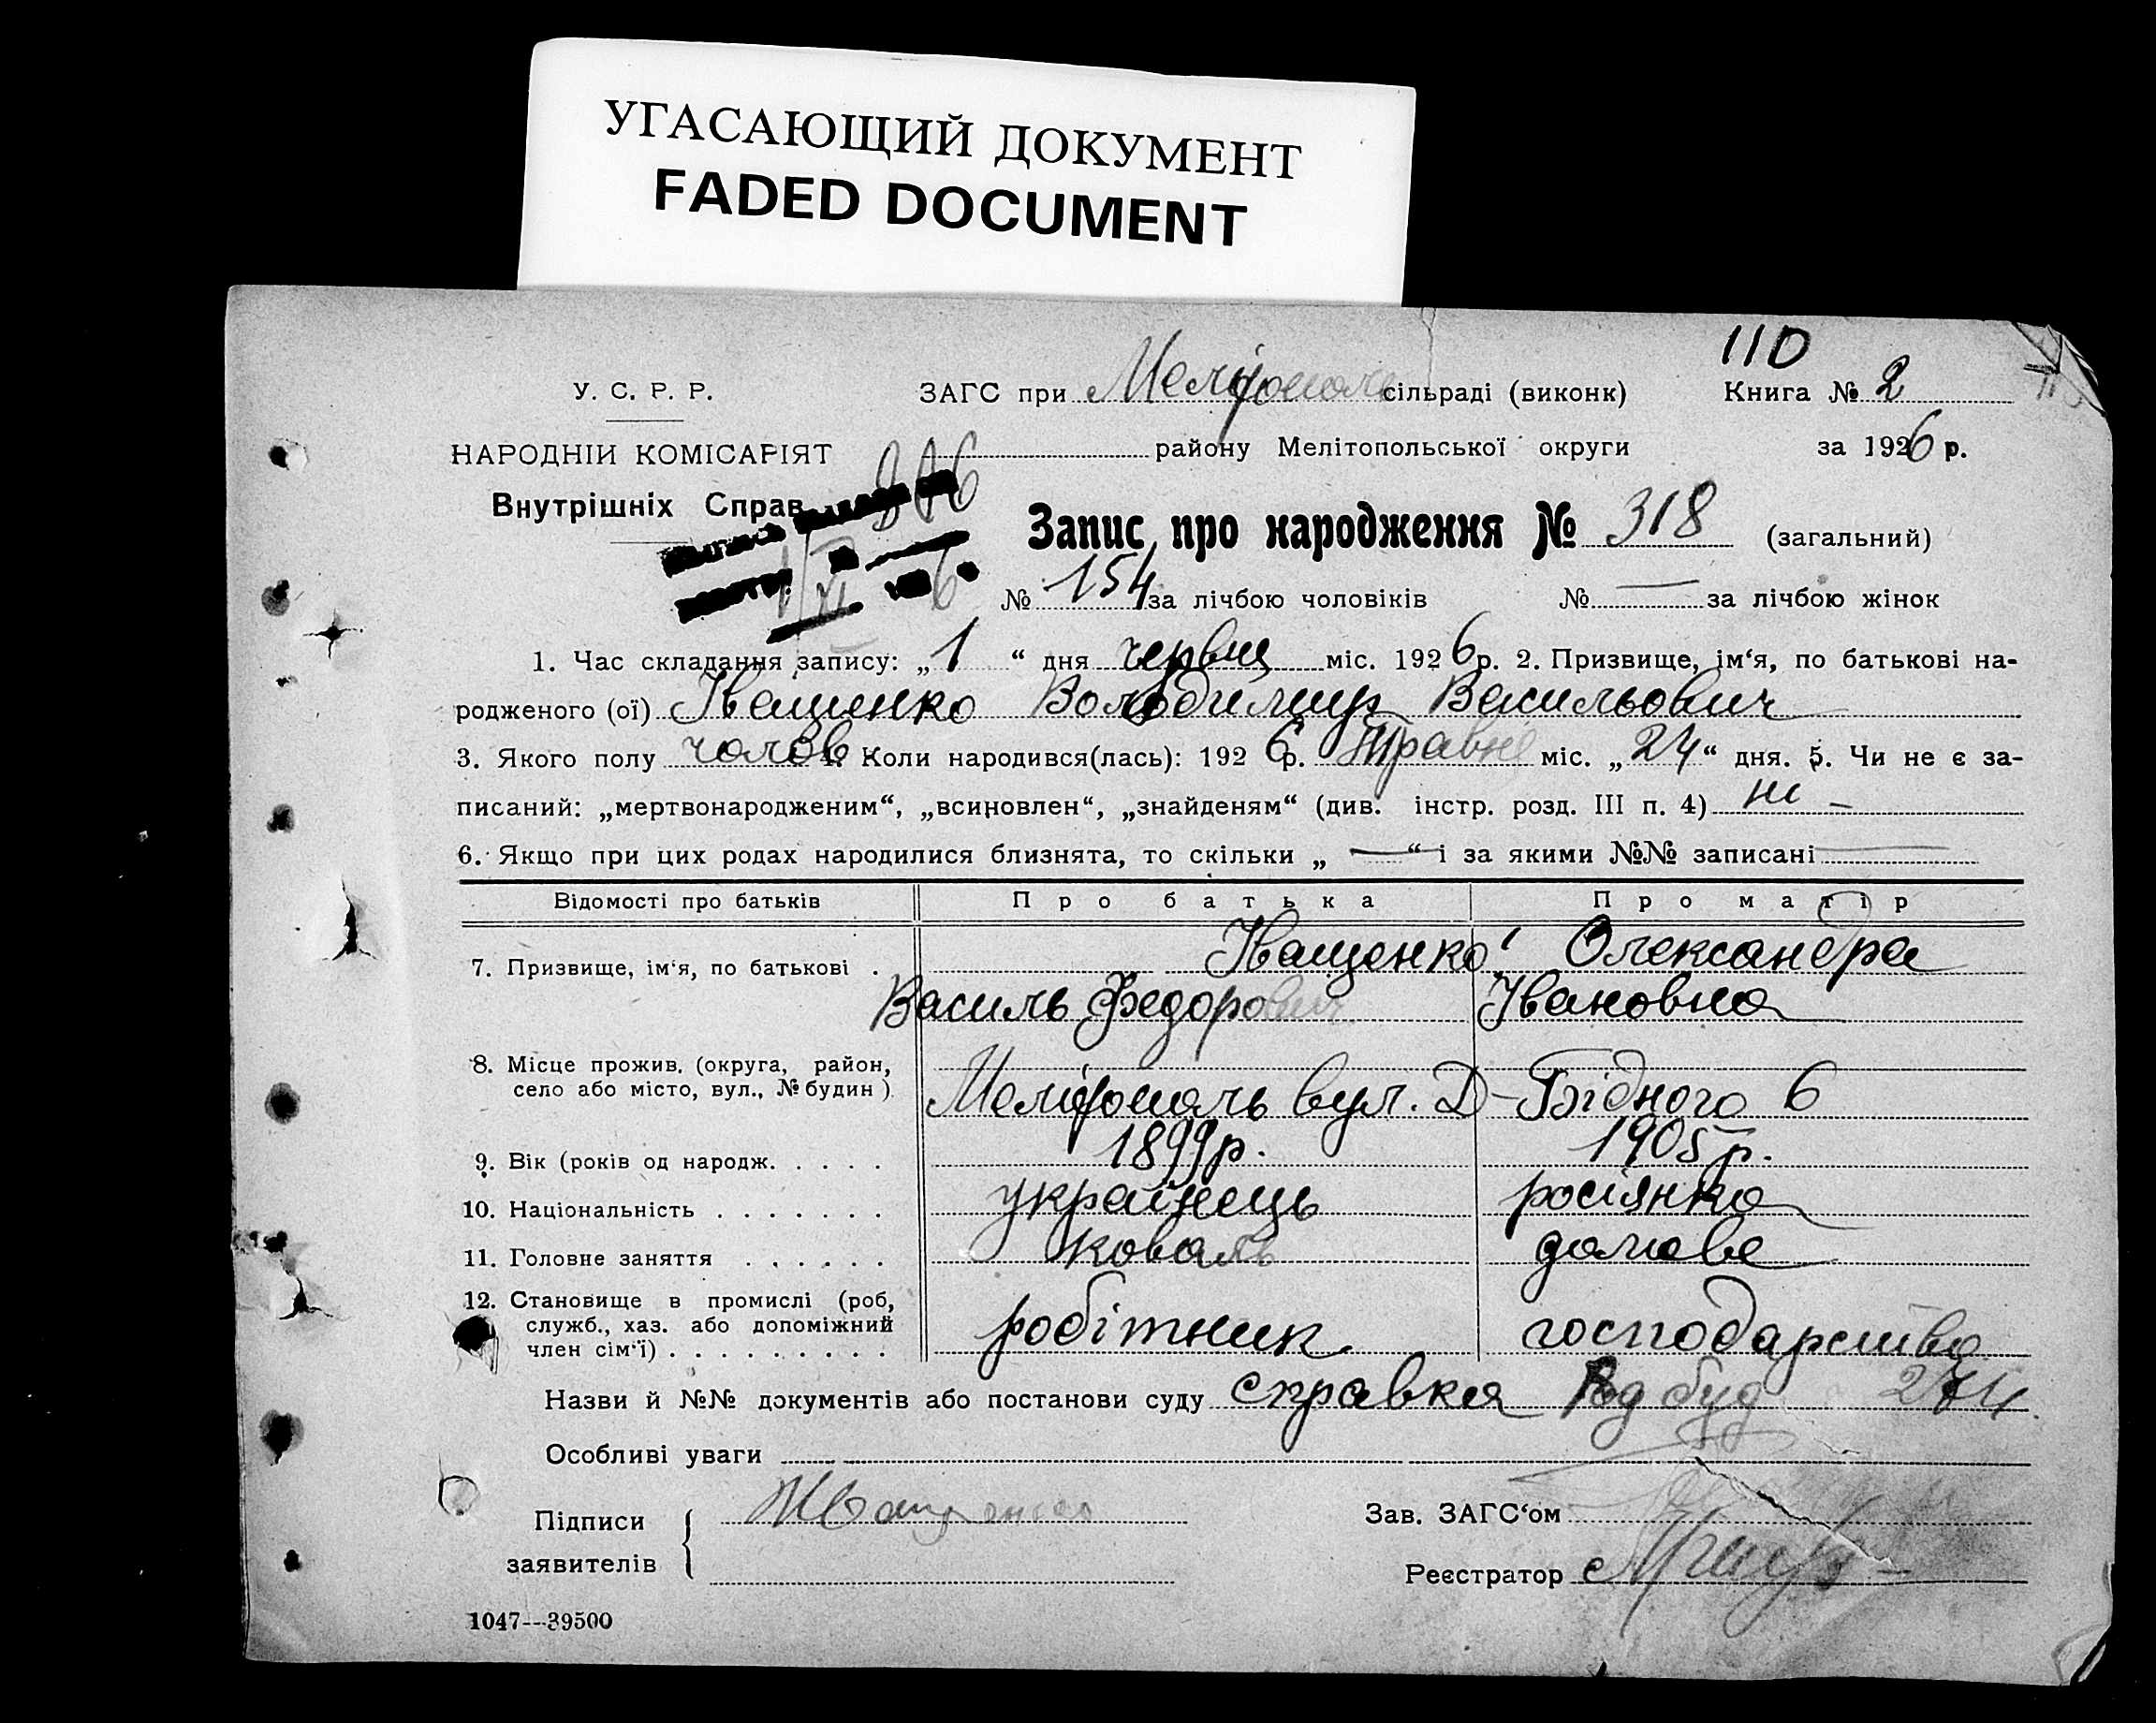 УГАСАЮЩИЙ ДОКУМЕНТ
FADED DOCUMENT
110
У. С. Р. Р.
ЗАГС при Мелітополь сільраді (виконк) Книга № 2
НАРОДНІЙ КОМІСАРІЯТ
району Мелітопольської округи за 1926 р.
Внутрішніх Справ
Запис про народження № 318 (загальний)
№ 154 за лічбою чоловіків № — за лічбою жінок
1. Час складання запису: „1“ дня червця міс. 1926 р. 2. Призвище, ім‘я, по батькові на-
родженого (ої) Іващенко Володимир Васильович
3. Якого полу чолов 4. Коли народився(лась): 1926 р. Травня міс. „24“ дня. 5. Чи не є за-
писаний: „мертвонародженим“, „всиновлен“, „знайденям“ (див. інстр. розд. III п. 4) ні —
6. Якщо при цих родах народилися близнята, то скільки „ — “ і за якими №№ записані —
Відомості про батьків Про батька Про матір
7. Призвище, ім‘я, по батькові . Іващенко Олександра
Василь Федорович Івановна
8. Місце прожив. (округа, район,
село або місто, вул., № будин ) Мелітополь вул. Д-Бідного 6
9. Вік (років од народж. . . . . 1899 р. 1905 р.
10. Національність . . . . . . . українець росіянка
11. Головне заняття . . . . . . коваль домове
12. Становище в промислі (роб,
служб., хаз. або допоміжний
член сім‘ї) . . . . . . . . . робітник господарство
Назви й №№ документів або постанови суду справка Род буд
Особливі уваги
Підписи Иващенко Зав. ЗАГС‘ом
заявителів Реєстратор
1047---39500